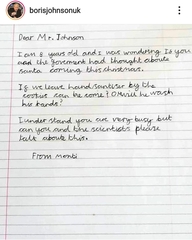 borisjohnsonuk
Dear Mr. Johnson
I am 8 years old and I was wondering if you
and the goverment had thought about
santa coming this christmas.
If we leave hand sanitiser by the
cookies can he come? Or will he wash
his hands?
I understand you are very busy but
can you and the scientists please
talk about this.
From monti